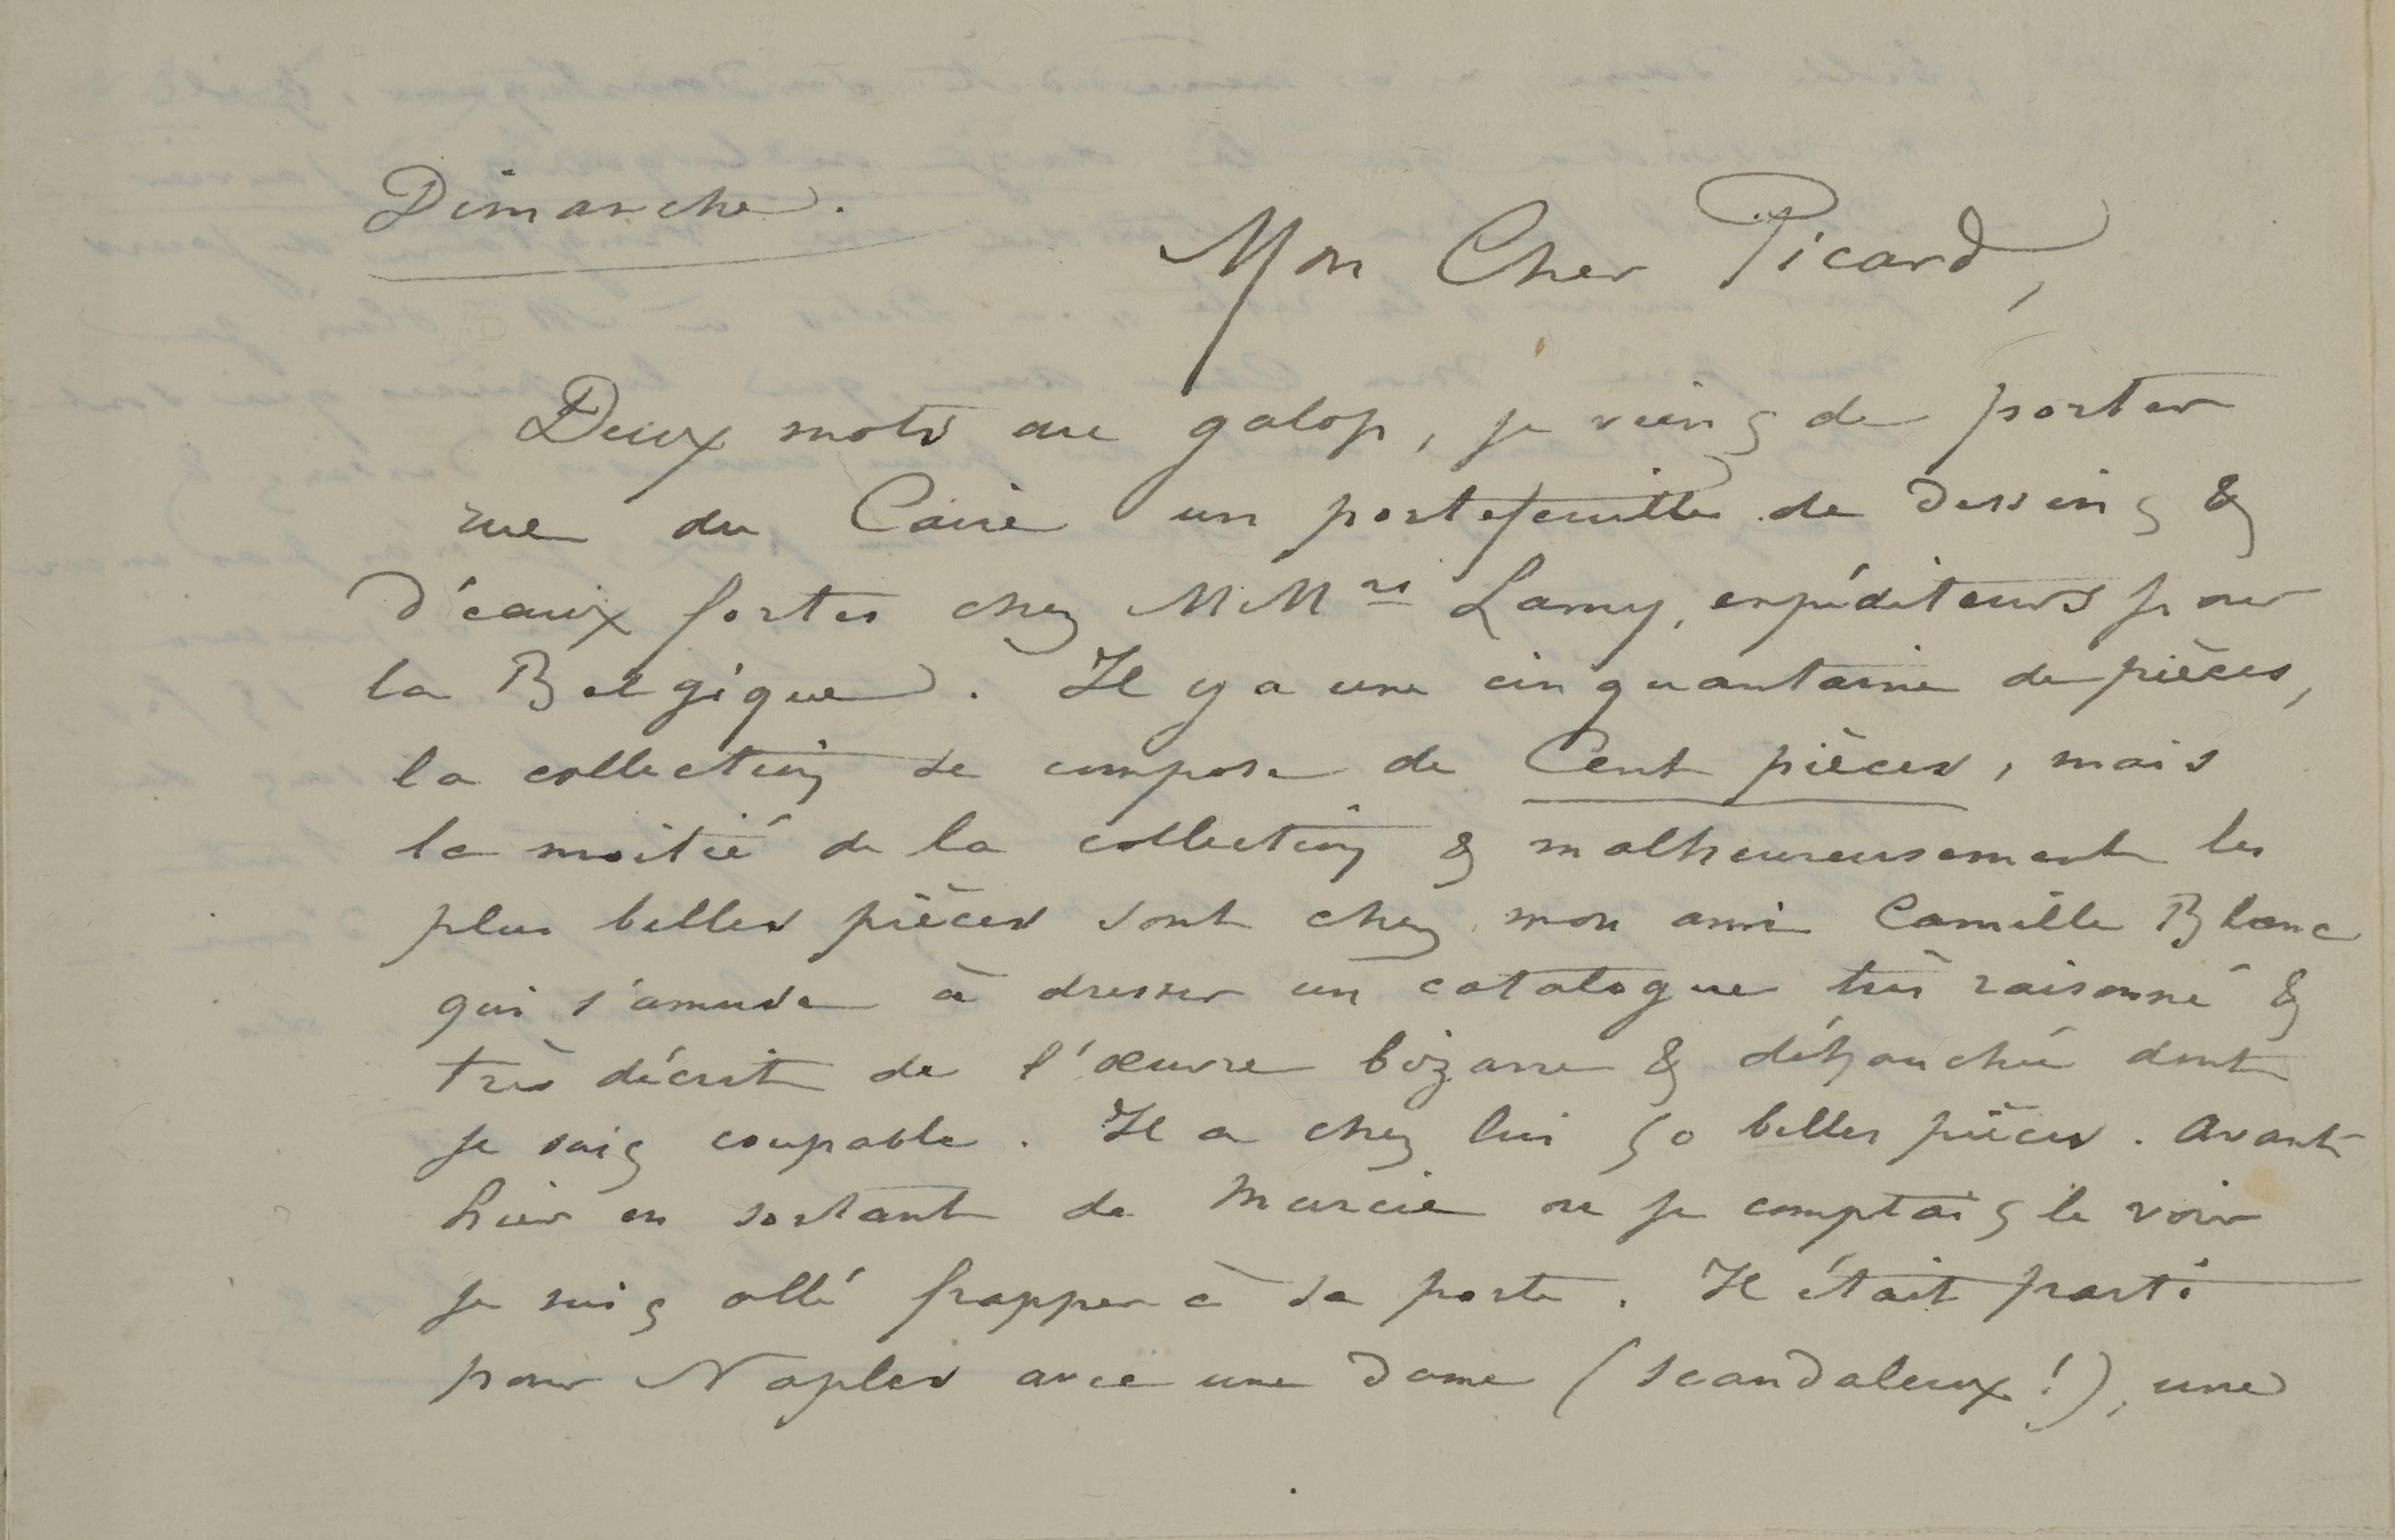 Dimanche.
Mon Cher Picard,
Deux mots au galop, je viens de porter
rue du Caire un portefeuille de dessins &
d'eaux fortes chez MMrs Lamy, expéditeurs pour
la Belgique. Il y a une cinquantaine de pièces,
la collection se compose de Cent pièces, mais
la moitié de la collection & malheureusement les
plus belles pièces sont chez mon ami Camille Blanc
qui s'amuse à dresser un catalogue très raisonné &
très décrit de l'œuvre bizarre & débauchée dont
je suis coupable. Il a chez lui 50 belles pièces. Avant-
hier en sortant de Murcie ou je comptais le voir
je suis allé frapper à sa porte. Il était parti
pour Naples avec une dame (scandaleux!), une